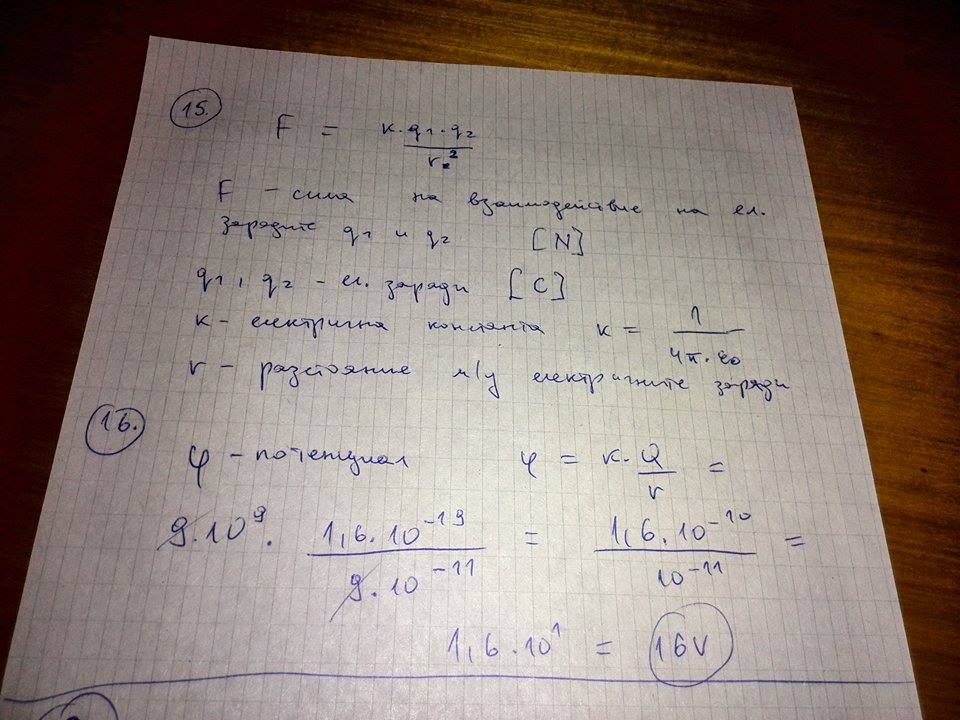 15.
F = k.q1.q2 / r²
F – сила на взаимодействие на ел.
зарядите q1 и q2 [N]
q1, q2 – ел. заряди [C]
к – електрична константа к = 1 / 4π.ε0
r – разстояние м/у електричните заряди
16.
φ – потенциал φ = к. Q / r =
9.10⁹. 1,6.10⁻¹⁹ / 9.10⁻¹¹ = 1,6.10⁻¹⁰ / 10⁻¹¹ =
1,6.10¹ = 16V